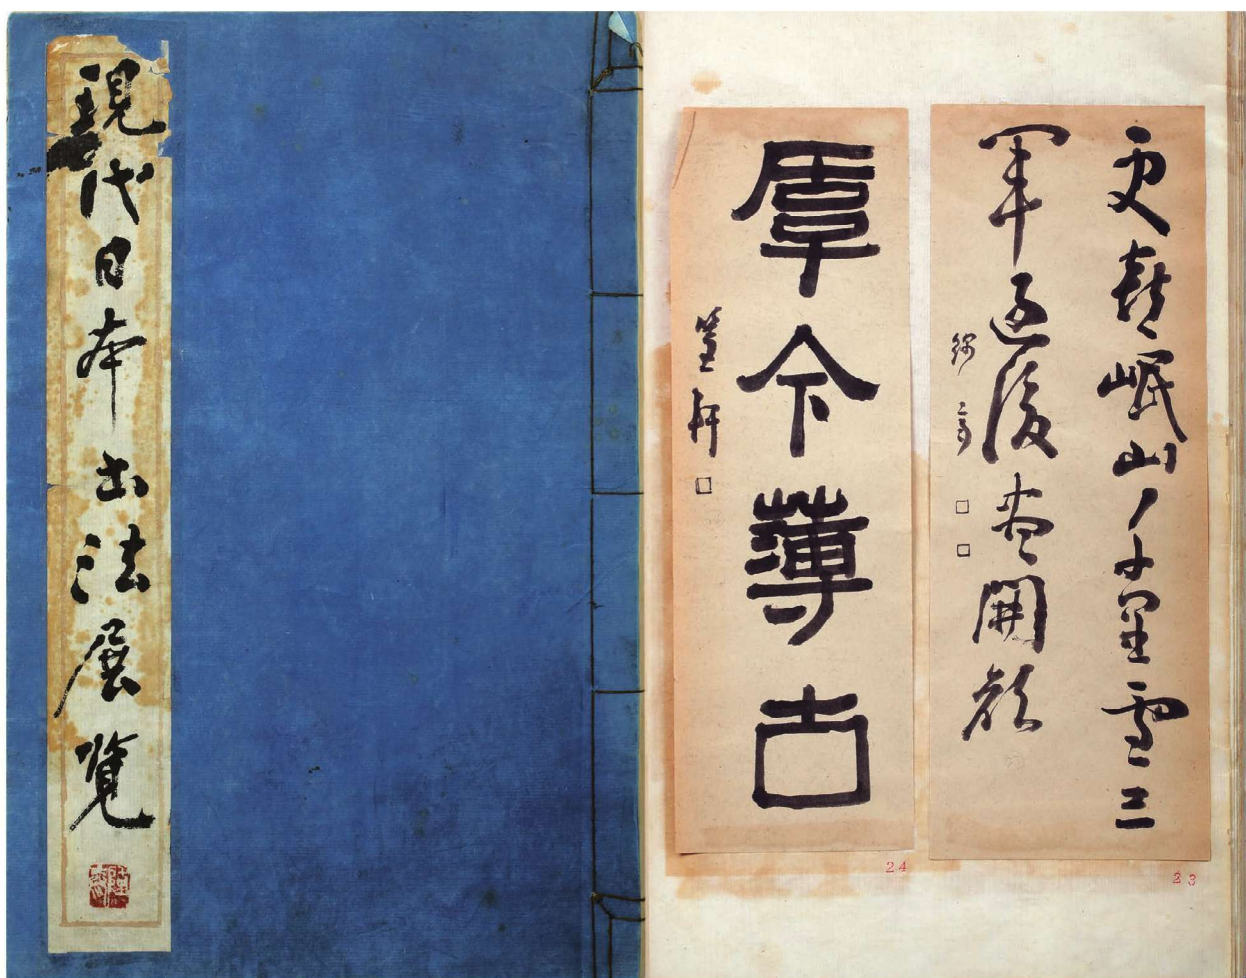 現代日本书法展览
更喜岷山千里雪三
軍過後尽開顔
厚今薄古
24
23